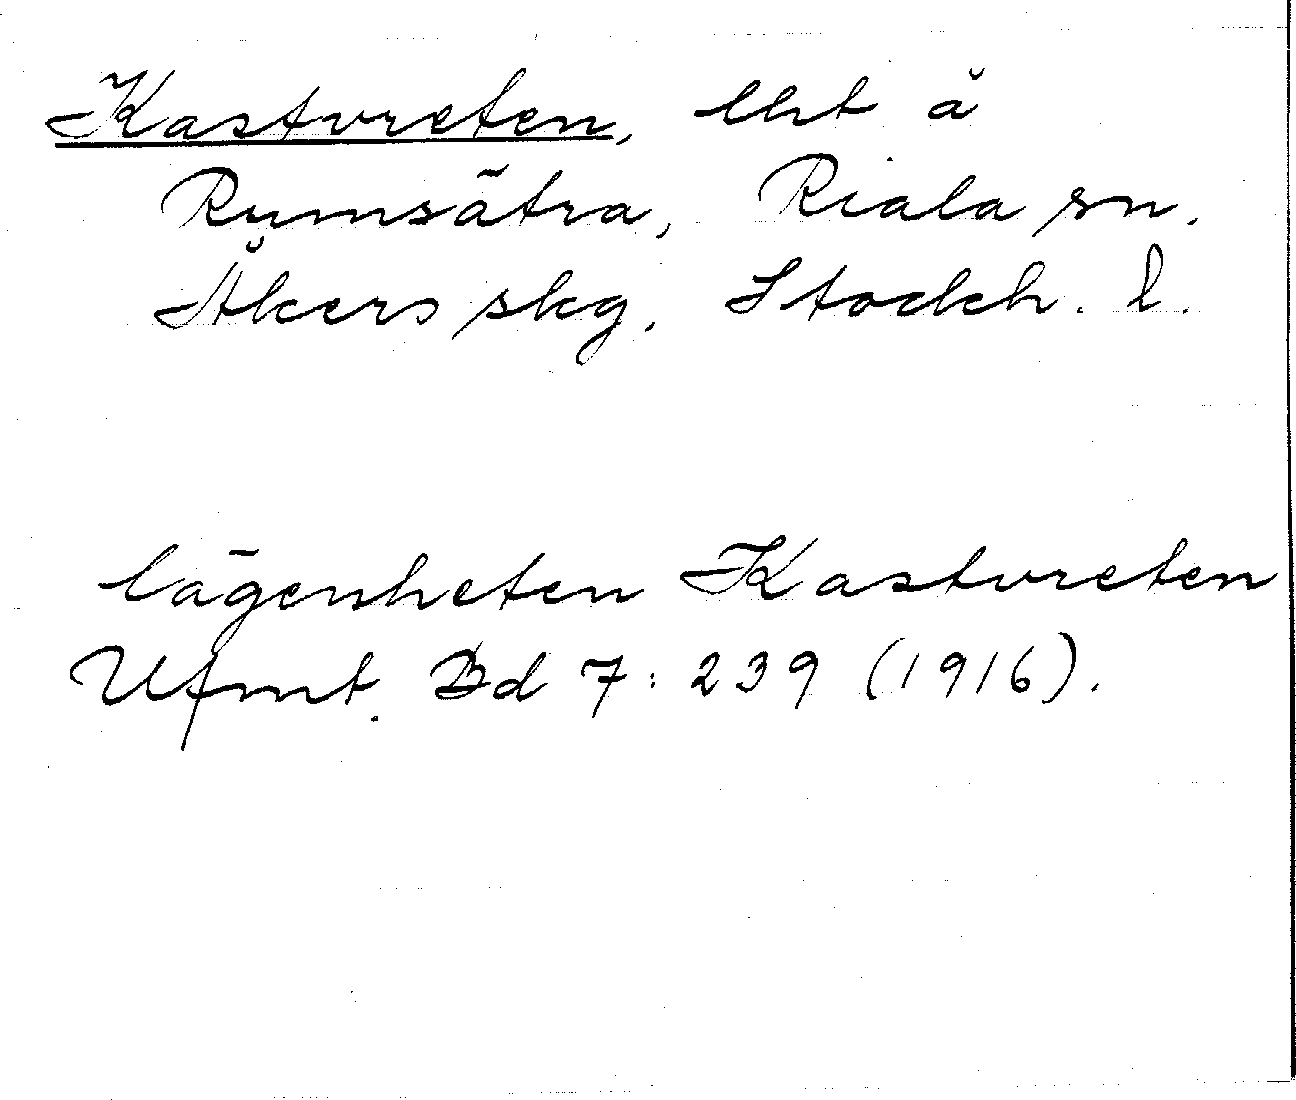 Kastvreten, lht å
Rumsätra, Riala sn.
Åkers skg, Stockh. l.
lägenheten Kastvreten
Ufmt. Bd 7: 239 (1916).